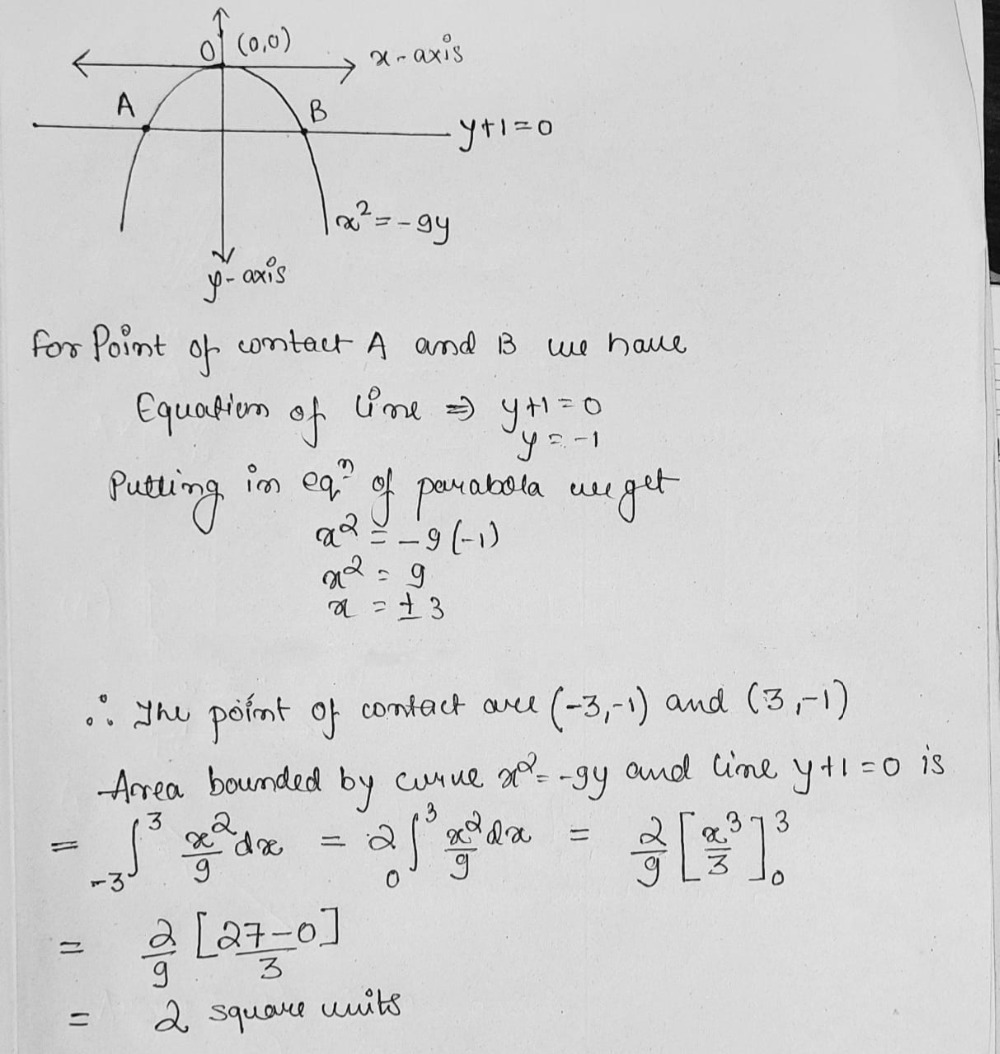 O (0,0)
x-axis
A
B
y+1=0
x²=-9y
y-axis
For Point of contact A and B we have
Equation of line ⇒ y+1=0
y = -1
Putting in eqⁿ of parabola we get
x² = -9(-1)
x² = 9
x = ±3
∴ The point of contact are (-3,-1) and (3,-1)
Area bounded by curve x²=-9y and line y+1=0 is
= ∫_{-3}^{3} x²/9 dx = 2∫_{0}^{3} x²/9 dx = 2/9 [x³/3]_{0}^{3}
= 2/9 [27-0]/3
= 2 square units